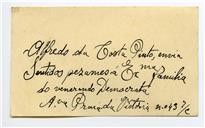 Alfredo da Costa Pinto, envia
Sentidos pezames á Ex.ma Familia
do venerando Democrata
A. na Rua da Vitória n.º 43 2/c